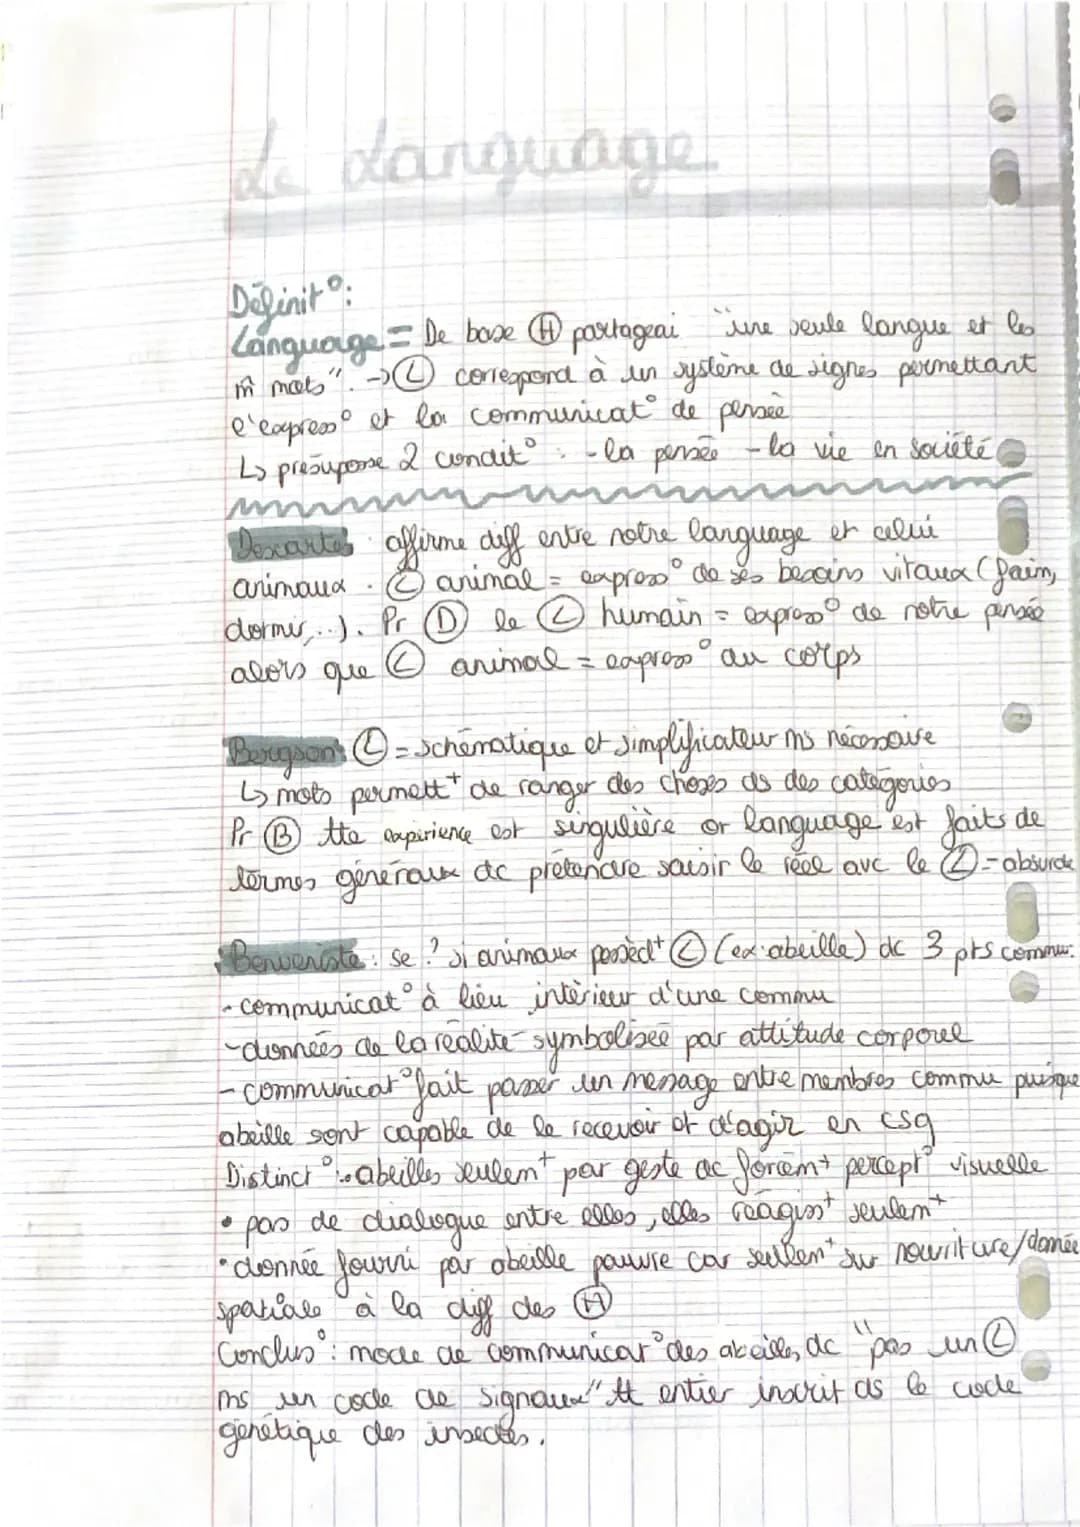 Le Language
Définit°:
Language = De base Ⓗ partageai "une seule langue et les
m̂ mots". → Ⓛ correspond à un système de signes permettant
l'express° et la communicat° de pensée
↳ présuppose 2 condit° : - la pensée - la vie en société
Descartes : affirme diff entre notre language et celui
animaux. Ⓛ animal = express° de ses besoins vitaux (faim,
dormir,...). Pr Ⓓ le Ⓛ humain = express° de notre pensée
alors que Ⓛ animal = express° du corps
Bergson : Ⓛ = schématique et simplificateur ms nécessaire
↳ mots permett⁺ de ranger des choses ds des catégories
Pr Ⓑ tte expérience est singulière or language est faits de
termes généraux dc prétendre saisir le réel avc le Ⓛ = absurde
Benveniste : se ? si animaux possèd⁺ Ⓛ (ex: abeille) dc 3 pts commu:
- communicat° à lieu intérieur d'une commu
- données de la réalité symbolisée par attitude corporel
- communicat° fait passer un message entre membres commu puisque
abeille sont capable de le recevoir et d'agir en csq
Distinct° : • abeilles seulem⁺ par geste dc forcém⁺ percept° visuelle
• pas de dialogue entre elles, elles réagiss⁺ seulem⁺
• donnée fourni par abeille pauvre car seulem⁺ sur nourriture/donnée
spatiale à la diff des Ⓗ
Conclus° : mode de communicat° des abeilles, dc "pas un Ⓛ
ms un code de signaux" tt entier inscrit ds le code
génétique des insectes.